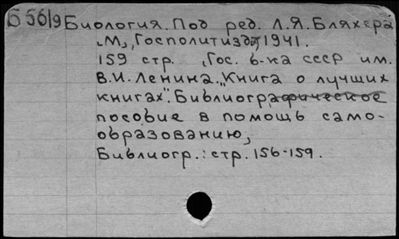 Б 5619 Биология. Под ред. Л.Я. Бляхера
М., Госполитиздат, 1941.
159 стр. (Гос. б-ка СССР им.
В.И. Ленина. "Книга о лучших
книгах". Библиографическое
пособие в помощь само-
образованию)
Библиогр.: стр. 156-159.